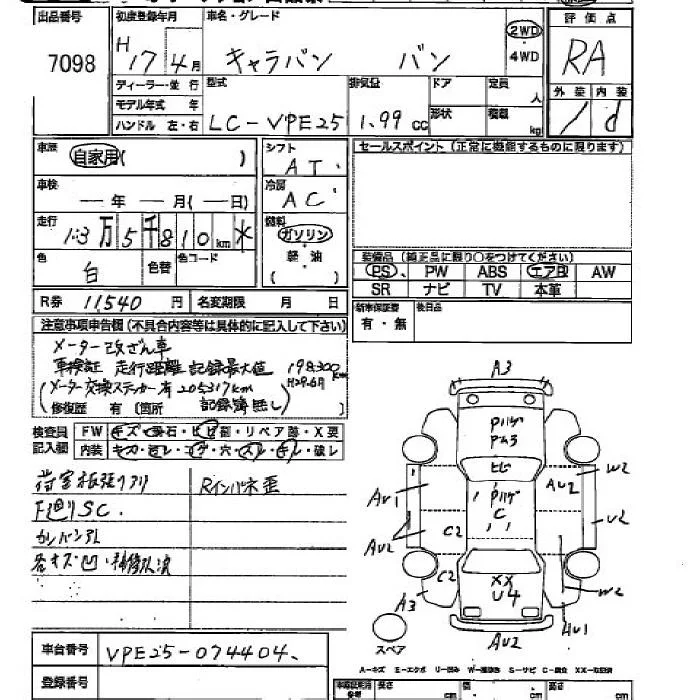 出品番号 初度登録年月 車名・グレード 評価点
7098 H17 4月 キャラバン バン 2WD・4WD RA
ディーラー・並 行 型式 排気量 ドア 定員 人 外装 内装
モデル年式 年
ハンドル 左・右 LC-VPE25 1.99 cc 形状 積載 kg / d
車歴 自家用( ) シフト AT. セールスポイント (正常に機能するものに限ります)
車検 ―年 ―月(―日) 冷房 AC
走行 13万5千810km 燃料 ガソリン・軽油 ( )
色 白 色替 色コード 装備品 (純正品に限り○をつけてください)
PS PW ABS エアB AW
SR ナビ TV 本革
R券 11,540 円 名変期限 月 日 新車保証書 有・無 後日品
注意事項申告欄 (不具合内容等は具体的に記入して下さい)
メーター改ざん車
車検証 走行距離 記録最大値 198,300km
H29.6月
(メーター交換ステッカー有 205317km
記録簿無し)
(修復歴 有 [箇所
検査員 FW キズ・飛石・ヒビ割・リペア跡・X要
記入欄 内装 キカ・コゲ・穴・スレ・破レ
荷室板張りアリ Rインパネ歪
下廻りSC.
カンバンアト
各キズ凹・補修跡
A3
Pハゲ
Pムラ
ヒビ
Pハゲ
C
AU1
AU2
C2
C2
A3
W2
AU2
U2
W2
AU1
XX
U4
AU2
スペア
A-キズ E-エクボ U-凹み W-補修跡 S-サビ C-腐食 XX-交換済
車台番号 VPE25-074404
登録番号 長さ cm 幅 cm 高さ cm